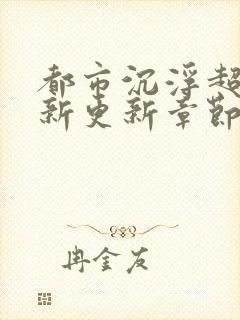 都市沉浮超
新更新章节
冉金友